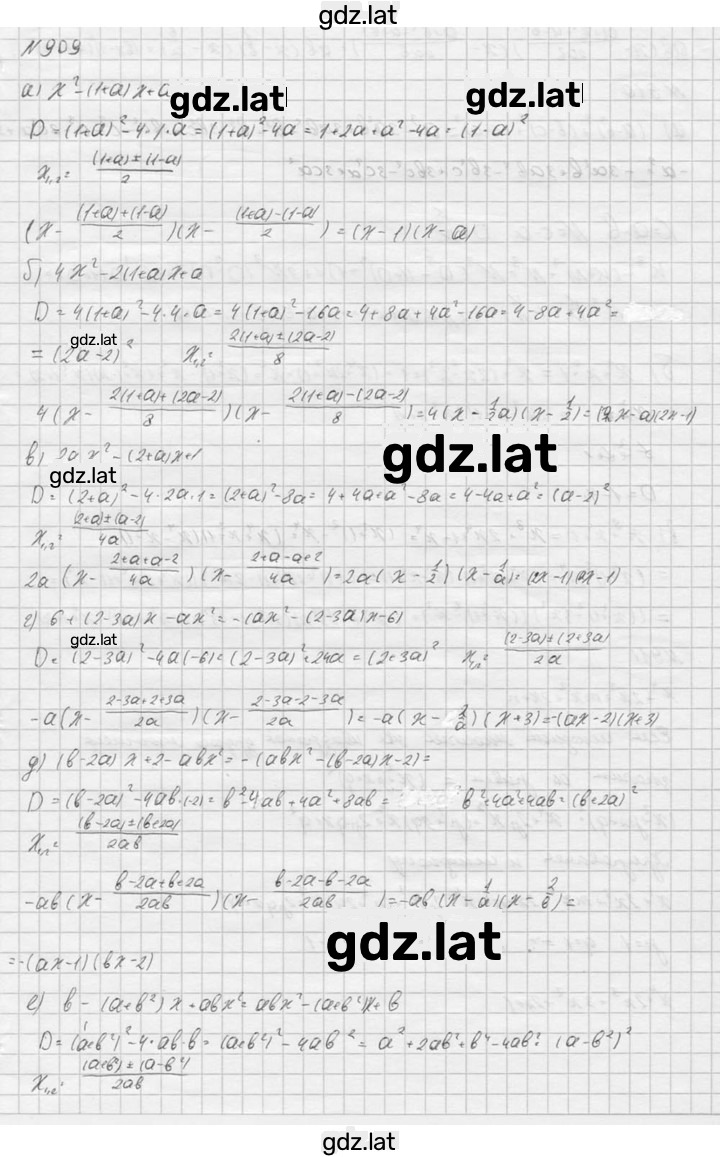 gdz.lat
N909
а) x² - (1+a)x+a
gdz.lat gdz.lat
D = (1+a)² - 4·1·a = (1+a)² - 4a = 1+2a+a² - 4a = (1-a)²
x₁,₂ = ((1+a) ± (1-a))/2
(x - ((1+a)+(1-a))/2)(x - ((1+a)-(1-a))/2) = (x-1)(x-a)
б) 4x² - 2(1+a)x+a
D = 4(1+a)² - 4·4·a = 4(1+a)² - 16a = 4+8a+4a² - 16a = 4-8a+4a² =
gdz.lat
= (2a-2)² x₁,₂ = (2(1+a) ± (2a-2))/8
4(x - (2(1+a)+(2a-2))/8)(x - (2(1+a)-(2a-2))/8) = 4(x - 1/2a)(x - 1/2) = (2x-a)(2x-1)
gdz.lat
в) 2ax² - (2+a)x+1
gdz.lat
D = (2+a)² - 4·2a·1 = (2+a)² - 8a = 4+4a+a² - 8a = 4-4a+a² = (a-2)²
x₁,₂ = ((2+a) ± (a-2))/4a
2a(x - (2+a+a-2)/4a)(x - (2+a-a+2)/4a) = 2a(x - 1/2)(x - 1/a) = (2x-1)(ax-1)
г) 6+(2-3a)x - ax² = -(ax² - (2-3a)x-6)
gdz.lat
D = (2-3a)² - 4a(-6) = (2-3a)² + 24a = (2+3a)² x₁,₂ = ((2-3a) ± (2+3a))/2a
-a(x - (2-3a+2+3a)/2a)(x - (2-3a-2-3a)/2a) = -a(x - 2/a)(x+3) = -(ax-2)(x+3)
д) (b-2a)x+2-abx² = -(abx² - (b-2a)x-2) =
D = (b-2a)² - 4ab·(-2) = b² - 4ab+4a²+8ab = b²+4a²+4ab = (b+2a)²
x₁,₂ = ((b-2a) ± (b+2a))/2ab
-ab(x - (b-2a+b+2a)/2ab)(x - (b-2a-b-2a)/2ab) = -ab(x - 1/a)(x - 2/b) =
gdz.lat
= -(ax-1)(bx-2)
е) b - (a+b²)x+abx² = abx² - (a+b²)x+b
D = (a+b²)² - 4·ab·b = (a+b²)² - 4ab² = a²+2ab²+b⁴-4ab² = (a-b²)²
x₁,₂ = ((a+b²) ± (a-b²))/2ab
gdz.lat